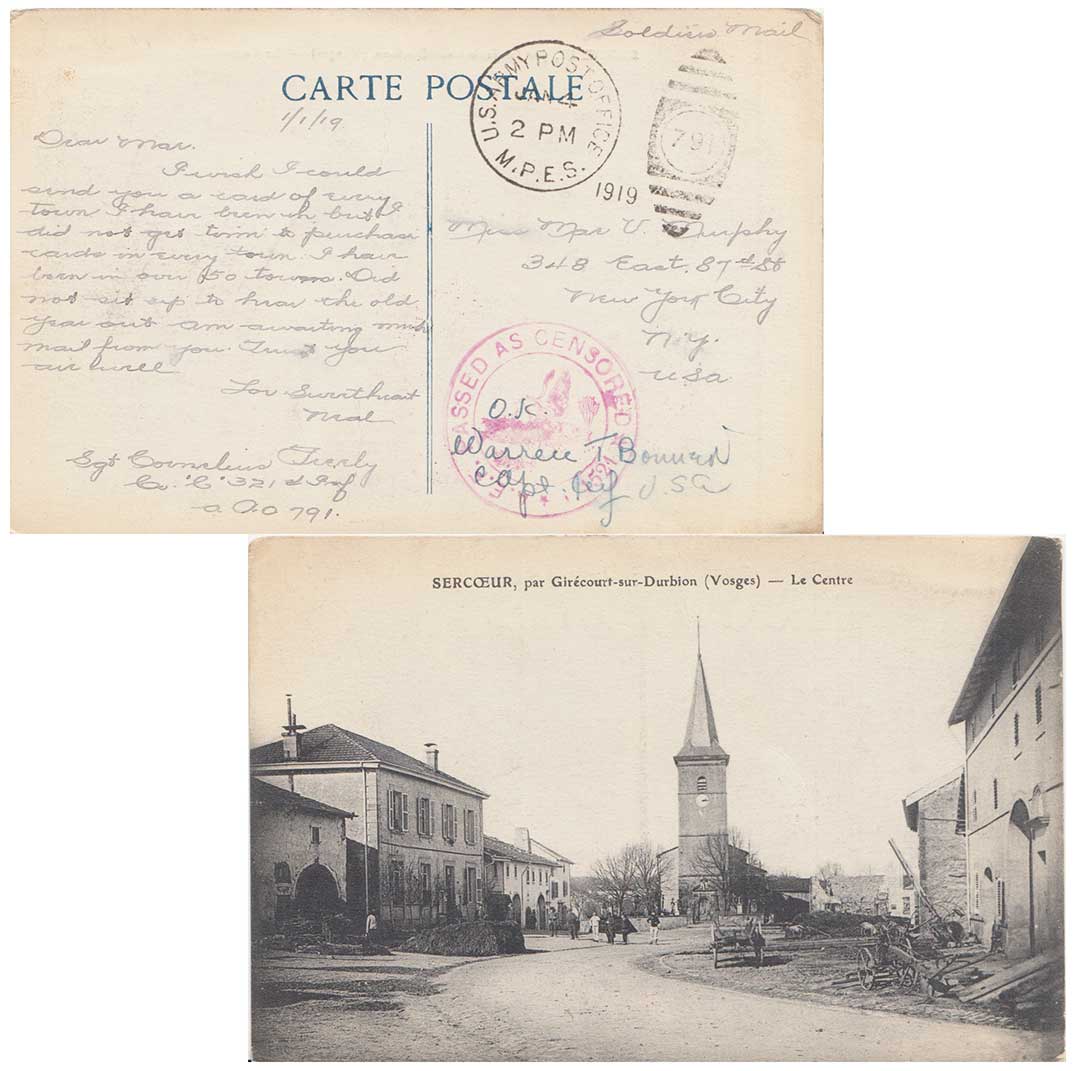 Soldiers Mail
CARTE POSTALE
U.S. ARMY POST OFFICE
JAN 4
2 PM
M.P.E.S.
1919
791
1/1/19
Dear Mae.
I wish I could
send you a card of every
town I have been in but I
did not get time to purchase
cards in every town. I have
been in over 50 towns. Did
not sit up to hear the old
year out am awaiting much
mail from you. Trust you
are well
Lov Sweetheart
Neal
Sgt Cornelius
Co. "C" 321st Inf
A.P.O 791.
Miss Mae V. Murphy
348 East. 87th St
New York City
N.Y.
USA
PASSED AS CENSORED
A.E.F.
O.K.
Warren T.
Capt. Inf USA
SERCŒUR, par Girécourt-sur-Durbion (Vosges) — Le Centre